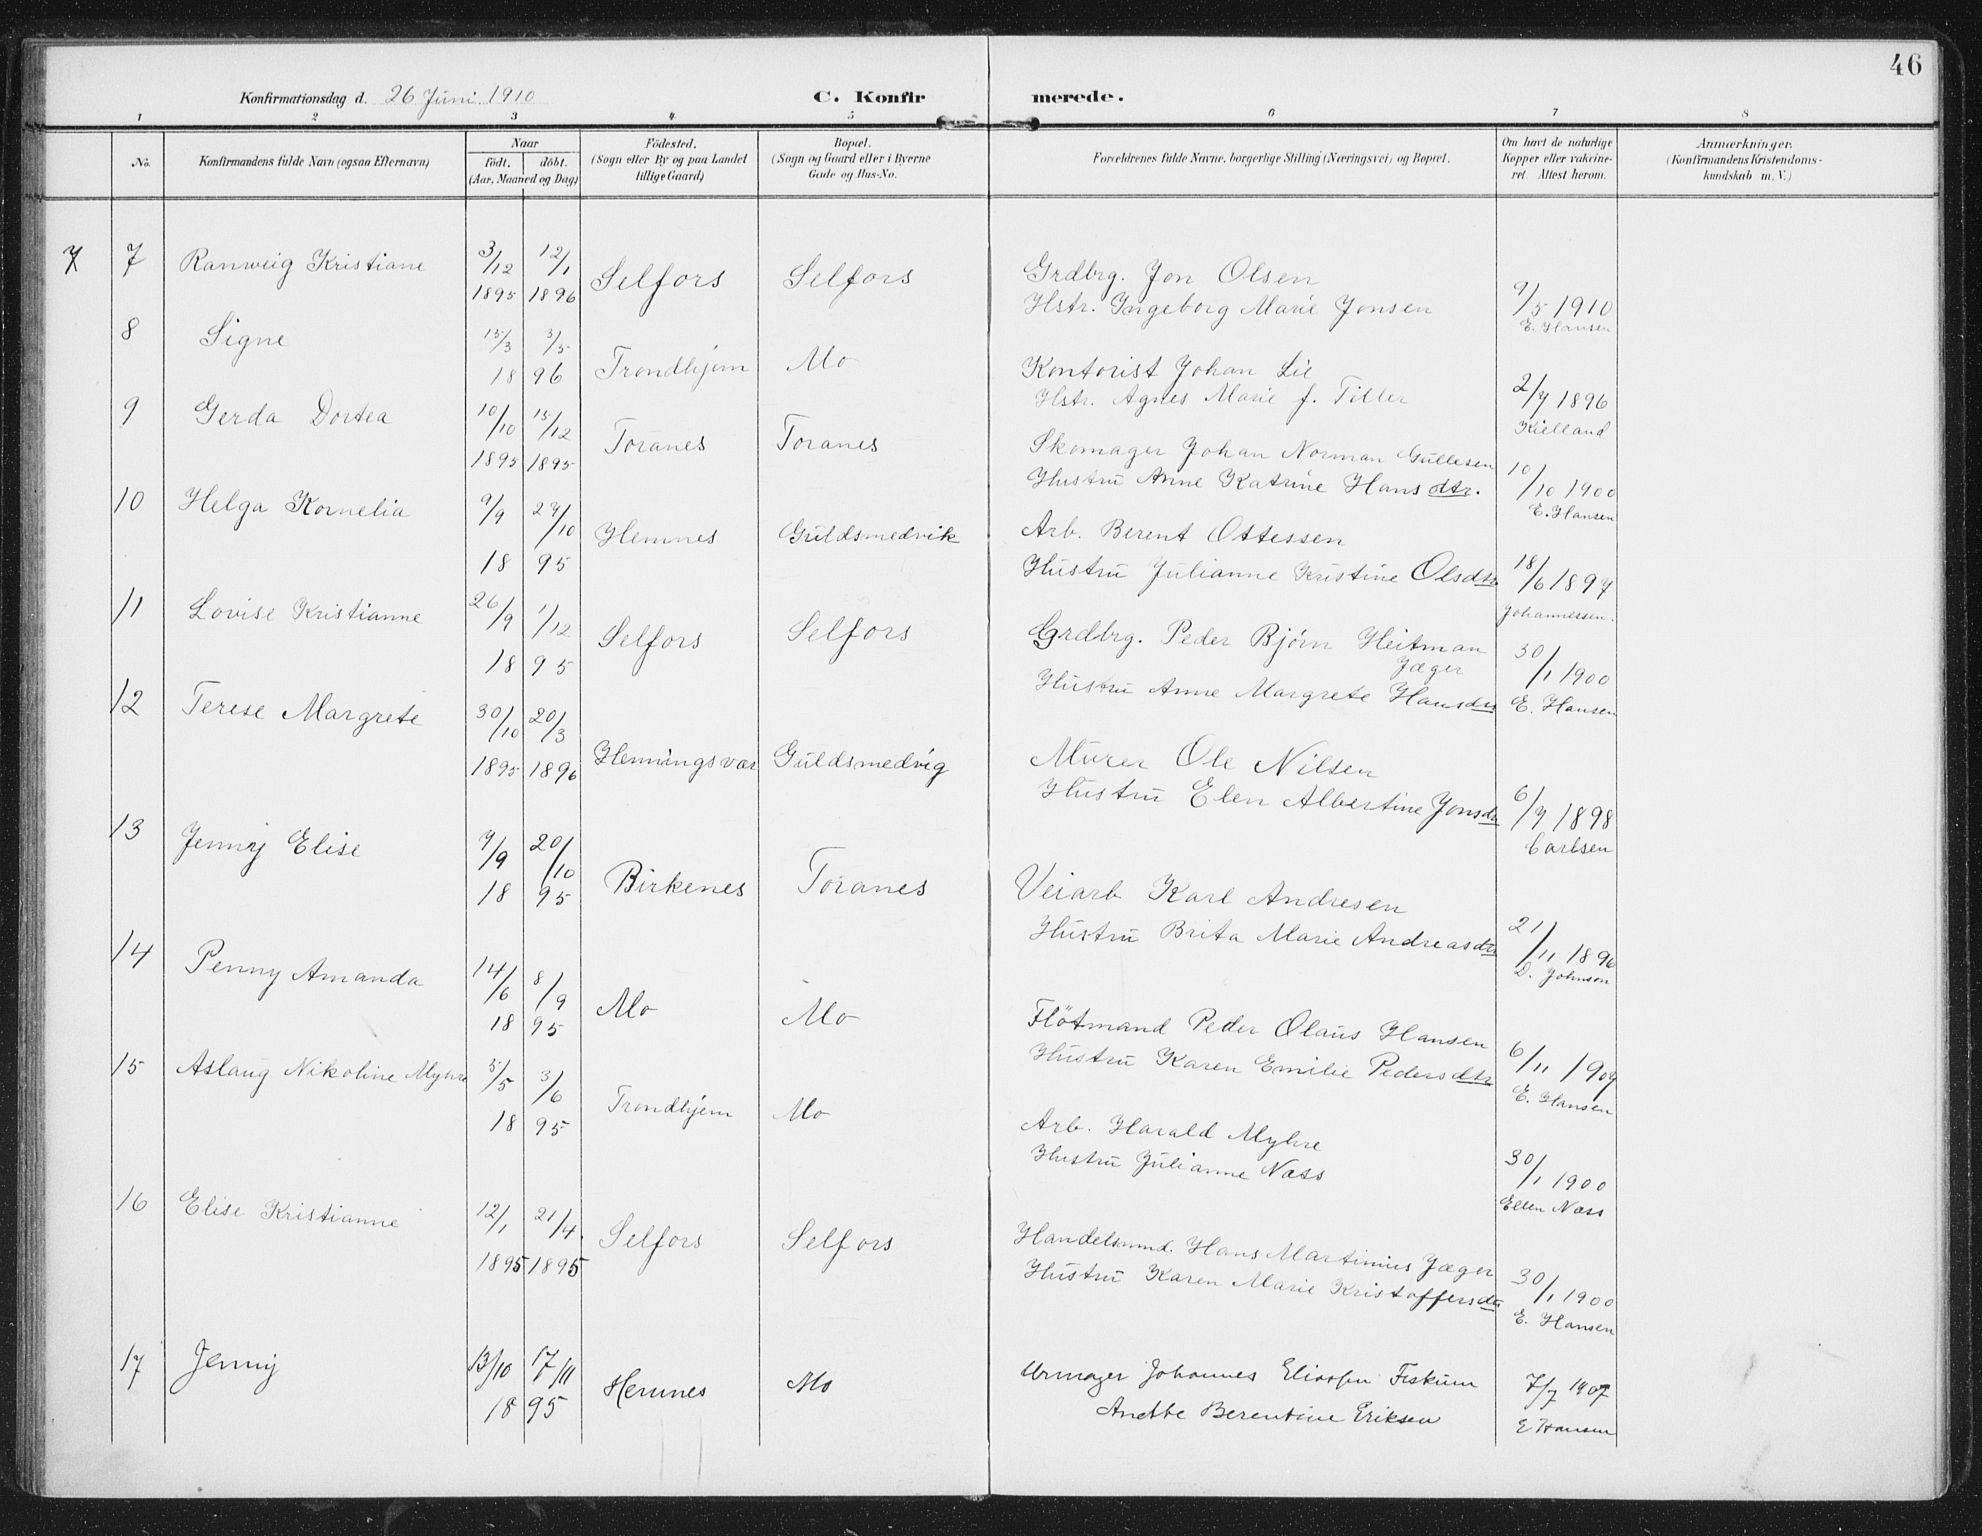 46
Konfirmationsdag d. 26 Juni 1910 C. Konfirmerede.
1 2 3 4 5 6 7 8
No. Konfirmandens fulde Navn (ogsaa Efternavn) Naar født. døbt. (Aar, Maaned og Dag) Fødested. (Sogn eller By og paa Landet tillige Gaard) Bopæl. (Sogn og Gaard eller i Byerne Gade og Hus-No. Forældrenes fulde Navne, borgerlige Stilling (Næringsvei) og Bopæl. Om havt de naturlige Kopper eller vakcineret. Attest herom. Anmærkninger. (Konfirmandens Kristendomskundskab m. V.)
7 7 Ranweig Kristiane 3/12 1895 12/1 1896 Selfors Selfors Grdbrg. Jon Olsen
Hstr. Ingeborg Marie Jonsen 9/5 1910
E. Hansen
8 Signe 15/3 3/5 1896 Trondhjem Mo Kontorist Johan Lie
Hstr. Agnes Marie f. Tiller 2/7 1896
Kielland
9 Gerda Dortea 10/10 1895 15/12 1895 Toranes Toranes Skomager Johan Norman Gullesen
Hustru Anne Katrine Hansdtr. 10/10 1900
E. Hansen
10 Helga Kornelia 9/9 27/10 1895 Hemnes Guldsmedvik Arb. Berent Ottessen
Hustru Julianne Kristine Olsdtr 18/6 1897
Johannessen.
11 Lovise Kristianne 26/9 1/12 1895 Selfors Selfors Grdbrg. Peder Bjørn Heitman
Jæger
Hustru Anne Margrete Hansdtr 30/1 1900
E. Hansen
12 Terese Margrete 30/10 1895 20/3 1896 Henningsvær Guldsmedvig Murer Ole Nilsen
Hustru Elen Albertine Jonsdtr 6/7 1898
Carlsen
13 Jenny Elise 7/9 20/10 1895 Birkenes Toranes Veiarb Karl Andresen
Hustru Brita Marie Andreasdtr 21/11 1896
D. Johnson
14 Penny Amanda 14/6 8/9 1895 Mo Mo Fløtmand Peder Olaus Hansen
Hustru Karen Emilie Pedersdtr 6/11 1907
E. Hansen
15 Aslaug Nikoline Myhre 5/5 3/6 1895 Trondhjem Mo Arb. Harald Myhre
Hustru Julianne Næss 30/1 1900
Ellen Næss
16 Elise Kristianne 12/1 1895 21/4. 1895 Selfors Selfors Handelsmnd. Hans Martinius Jæger
Hustru Karen Marie Kristoffersdtr 30/1 1900
E. Hansen
17 Jenny 13/10 17/11 1895 Hemnes Mo Urmager Johannes Eliassen Fiskum
Berentine Eriksen 7/7 1907
E Hansen